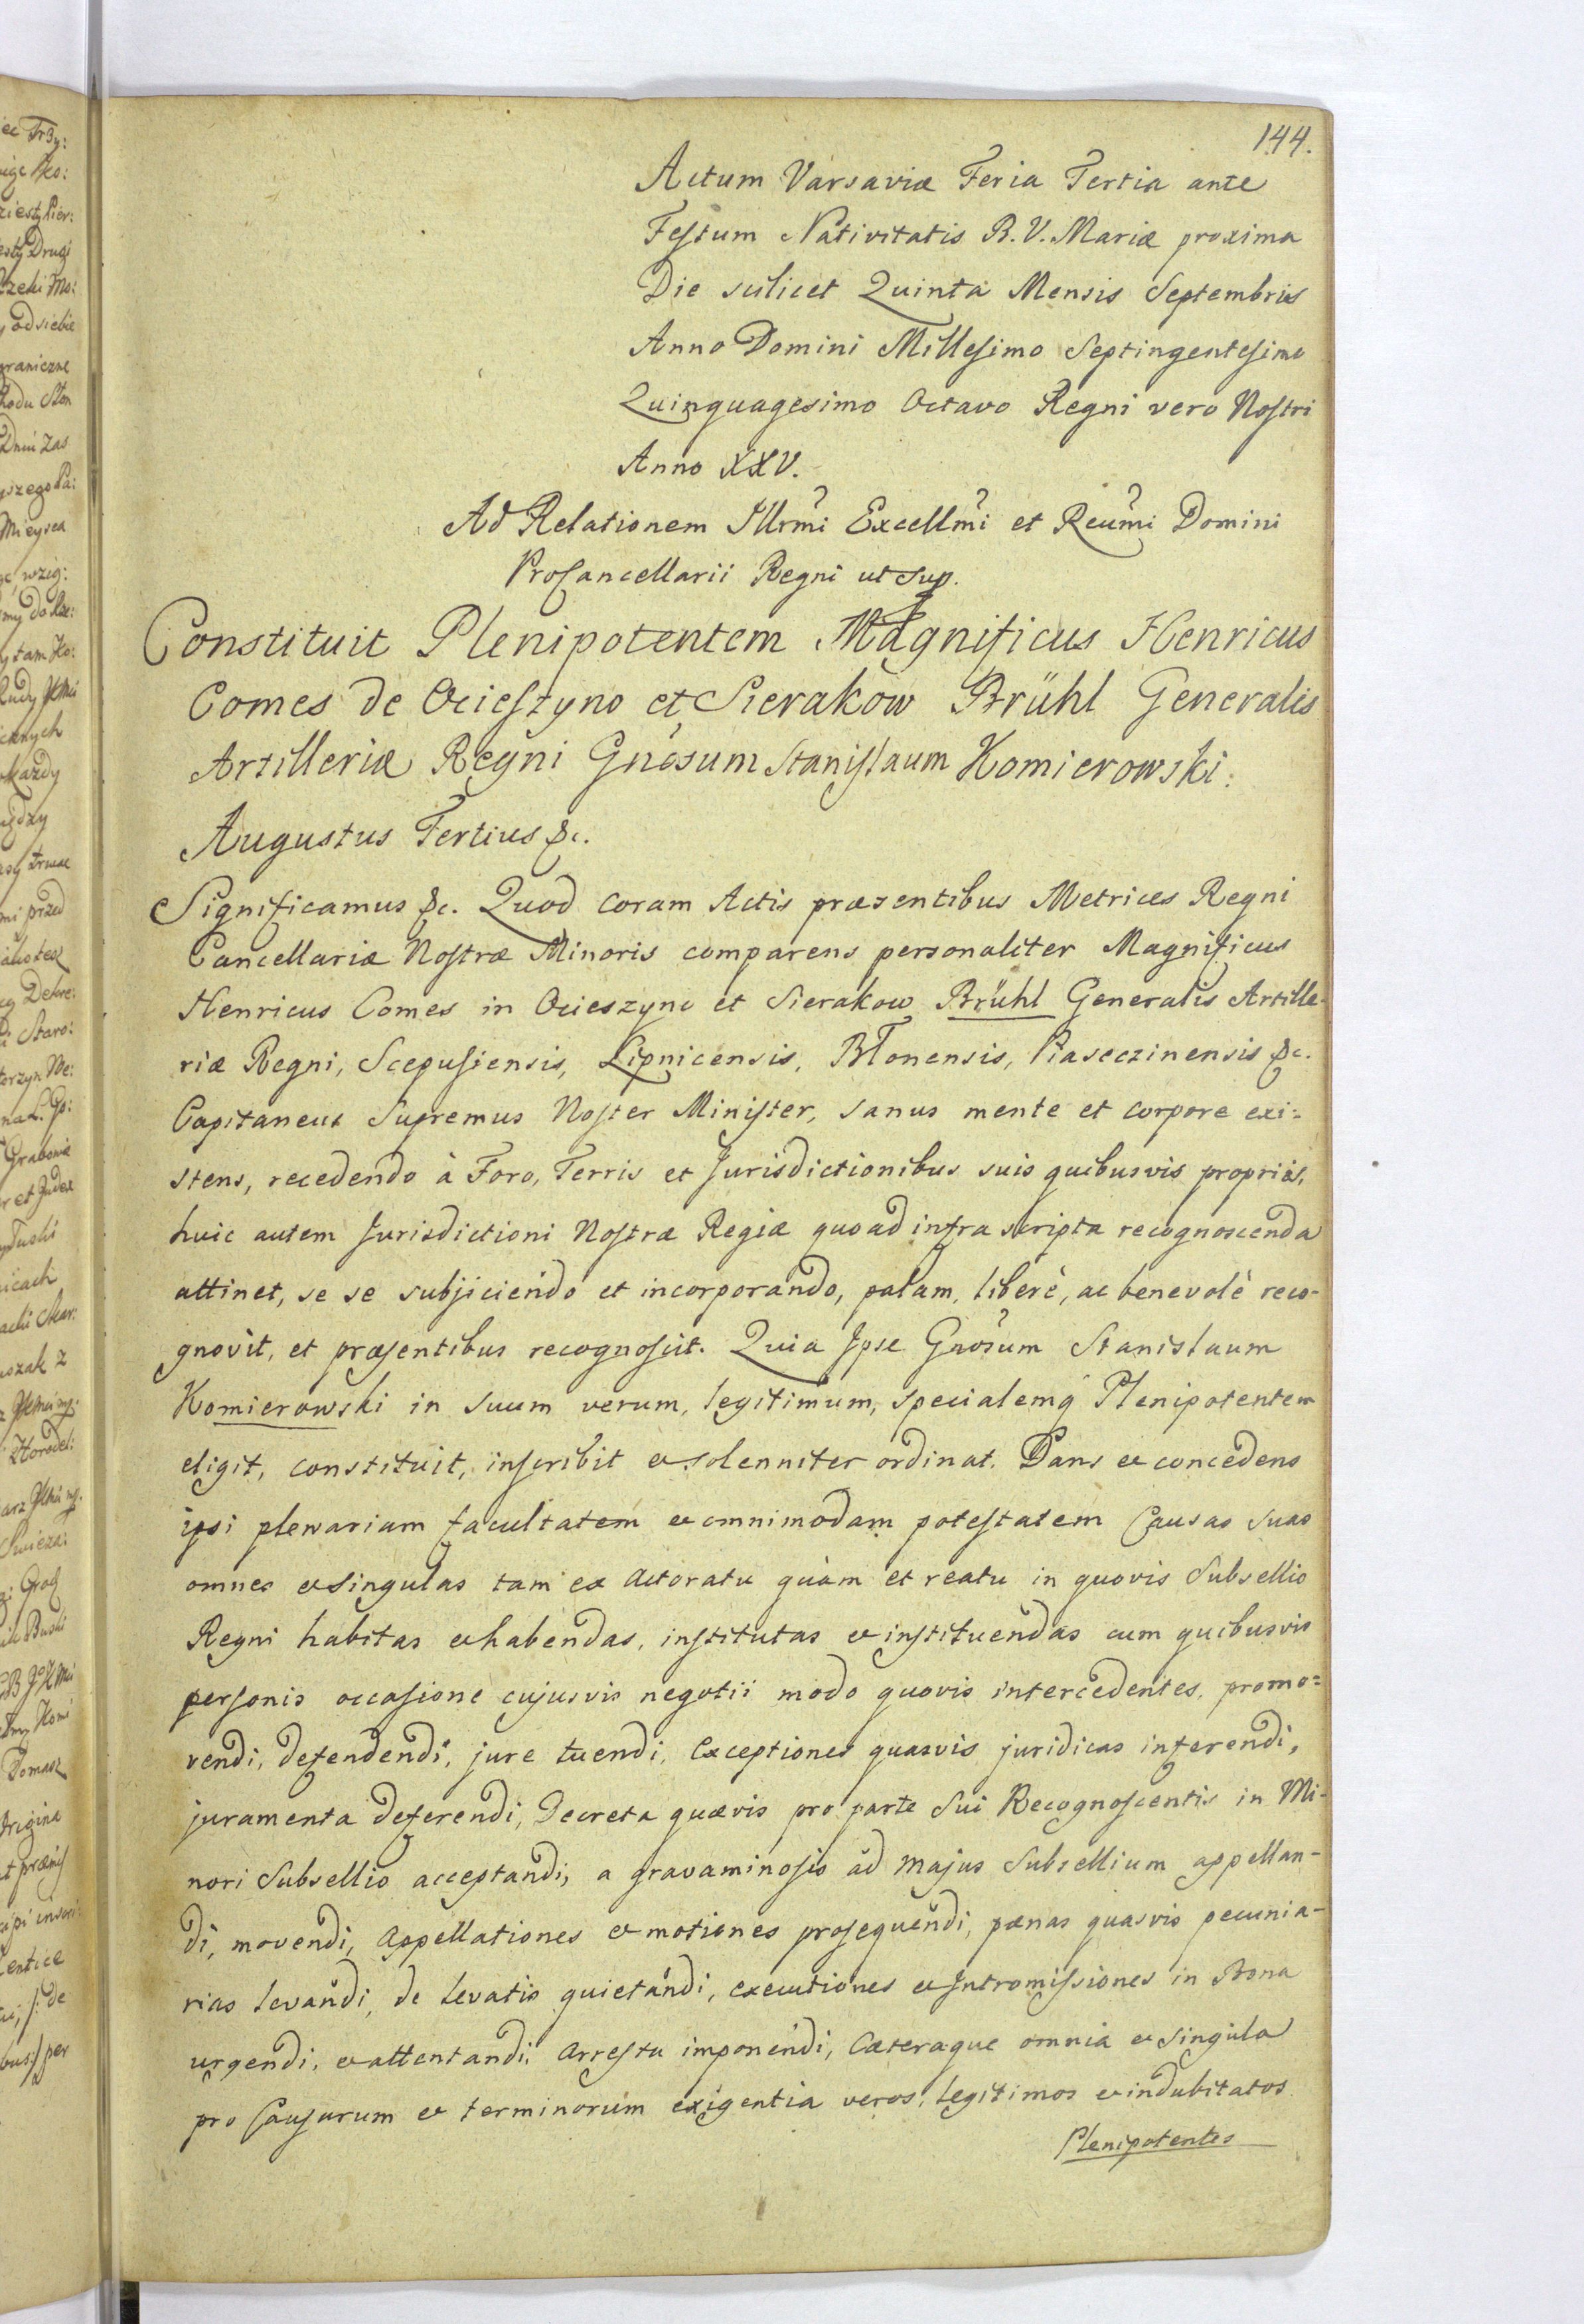 144.
Actum Varsaviæ Feria Tertia ante
Festum Nativitatis B. V. Mariæ proxima
Die scilicet Quinta Mensis Septembris
Anno Domini Millesimo Septingentesimo
Quinquagesimo Octavo Regni vero Nostri
Anno XXV.
Ad Relationem Illrmi Excellmi et Reumi Domini
ProCancellarii Regni ut sup.
Constituit Plenipotentem Magnificus Henricus
Comes de Ocieszyno et Sierakow Brühl Generalis
Artilleriæ Regni Gnosum Stanislaum Komierowski.
Augustus Tertius &c.
Significamus &c. Quod coram Actis præsentibus Metrices Regni
Cancellariæ Nostræ Minoris comparens personaliter Magnificus
Henricus Comes in Ocieszyno et Sierakow Brühl Generalis Artille-
riæ Regni, Scepusiensis, Lipnicensis, Błonensis, Piaseczinensis &c.
Capitaneus Supremus Noster Minister, sanus mente et corpore exi=
stens, recedendo à Foro, Terris et Jurisdictionibus suis quibusvis propriis,
huic autem Jurisdictioni Nostræ Regiæ quoad infra scripta recognoscenda
attinet, se se subjiciendo et incorporando, palam, liberè, ac benevolè reco-
gnovit, et præsentibus recognoscit. Quia Ipse Gnosum Stanislaum
Komierowski in suum verum, legitimum, specialemq Plenipotentem
eligit, constituit, inscribit et solenniter ordinat. Dans et concedens
ipsi plenariam facultatem et omnimodam potestatem Causas suas
omnes et singulas tam ex Actoratu quàm et reatu in quovis Subsellio
Regni habitas et habendas, institutas et instituendas cum quibusvis
personis occasione cujusvis negotii modo quovis intercedentes, promo=
vendi, defendendi, jure tuendi, Exceptiones quasvis juridicas inferendi,
juramenta deferendi, Decreta quævis pro parte Sui Recognoscentis in Mi-
nori Subsellio acceptandi, a gravaminosis ad majus Subsellium appellan-
di, movendi, Appellationes et motiones prosequendi, pænas quasvis pecunia-
rias levandi, de levatis quietandi, executiones et Intromissiones in Bona
urgendi, et attentandi, Arresta imponendi, Cæteraque omnia et singula
pro Causarum et terminorum exigentia veros, legitimos et indubitatos
Plenipotentes